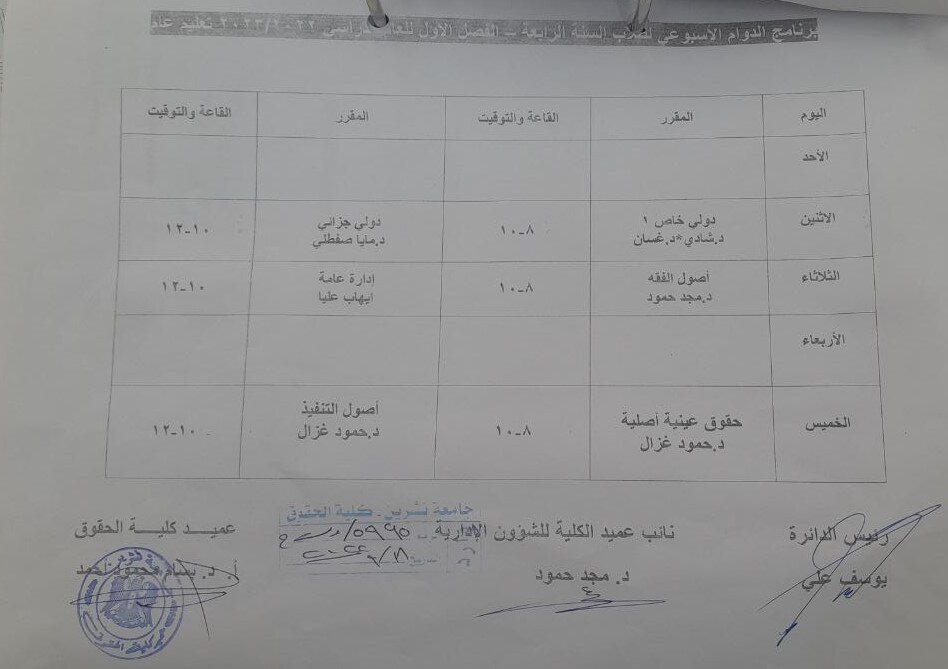 برنامج الدوام الاسبوعي لطلاب السنة الرابعة – الفصل الاول للعام الدراسي ٢٠٢٣/٢٠٢٢ تعليم عام
اليوم المقرر القاعة والتوقيت المقرر القاعة والتوقيت
الأحد
الاثنين دولي خاص ١ ٨-١٠ دولي جزائي ١٠-١٢
د.شادي*د.غسان د.مايا صفطلي
الثلاثاء أصول الفقه ٨-١٠ إدارة عامة ١٠-١٢
د.مجد حمود ايهاب عليا
الأربعاء
الخميس حقوق عينية أصلية ٨-١٠ أصول التنفيذ ١٠-١٢
د.حمود غزال د.حمود غزال
جامعة تشرين - كلية الحقوق
رئيس الدائرة نائب عميد الكلية للشؤون الإدارية عميد كلية الحقوق
يوسف علي د. مجد حمود أ. د. بسام محمود أحمد